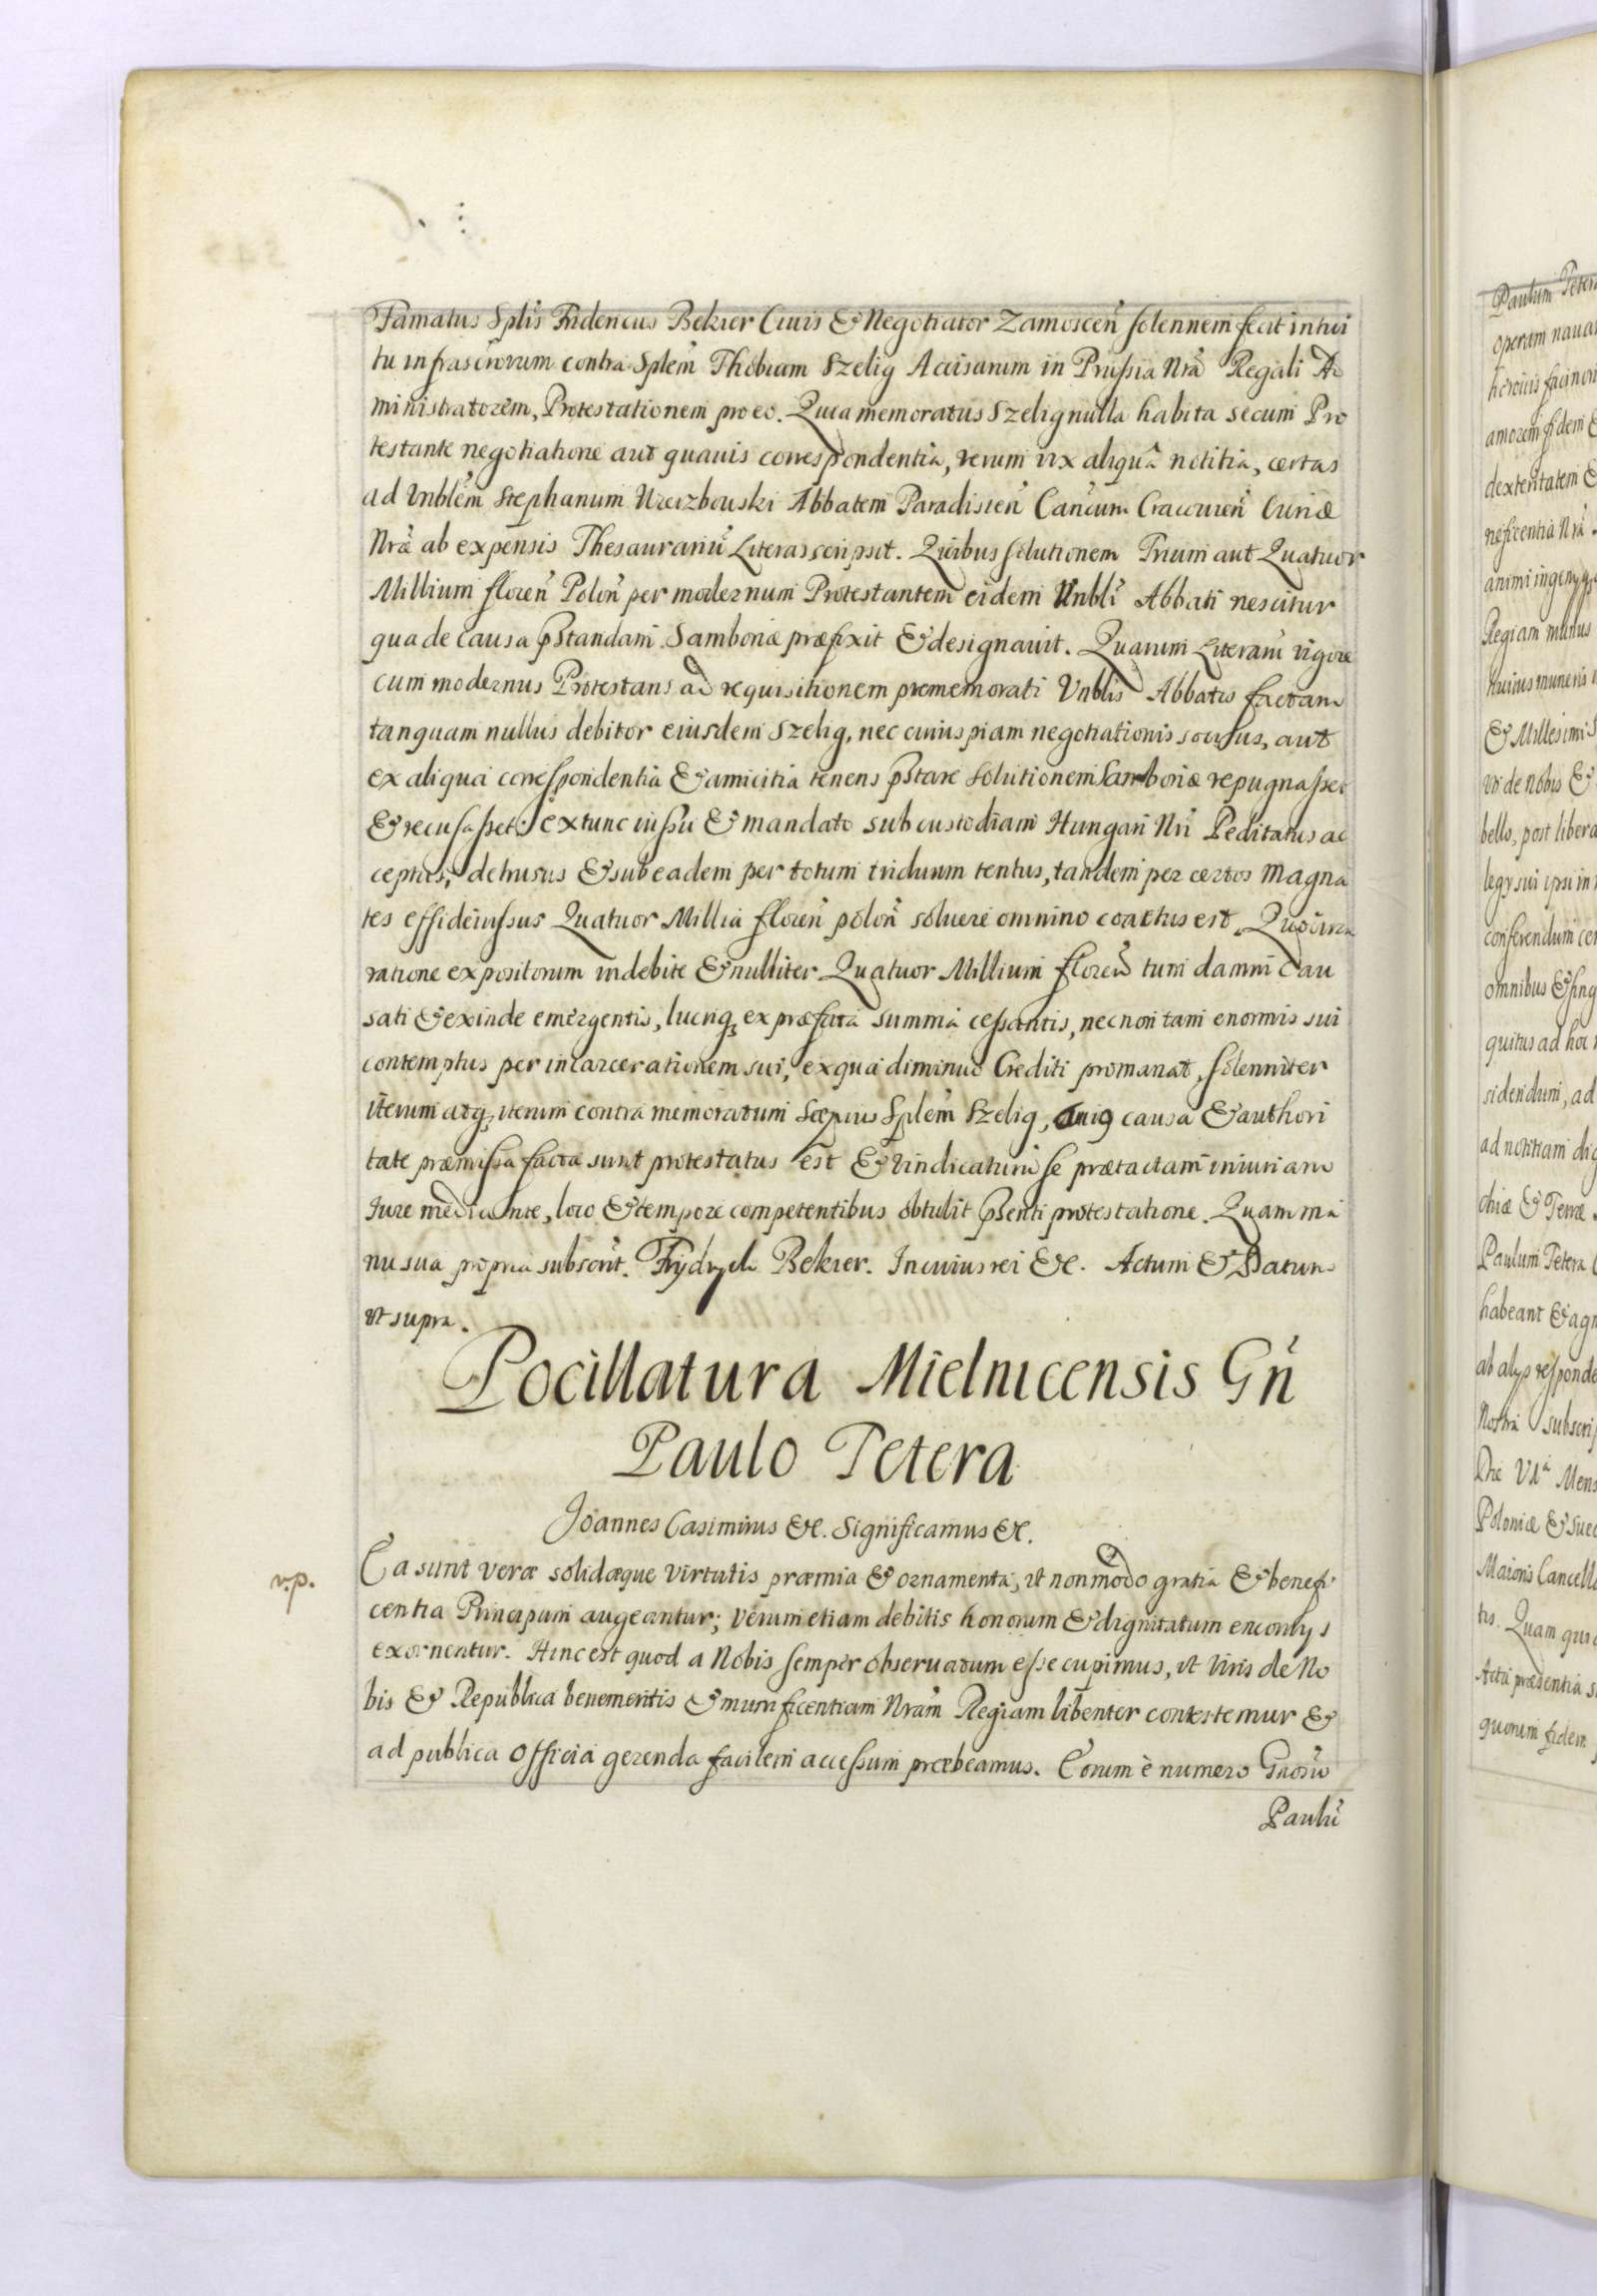 Famatus Splis Fridericus Bekier Ciuis & Negotiator Zamoscen solennem fecit intui
tu infrascrorum contra Splem Thobiam Szelig Accisarum in Prussia Nra Regali Ad
ministratorem, Protestationem pro eo. Quia memoratus Szelig nulla habita secum Pro
testante negotiatione aut quauis correspondentia, verum vix aliqua notitia, certas
ad Vnblem Stephanum Wierzbouski Abbatem Paradisien Cancum Cracouien Curiæ
Nræ ab expensis Thesaurariu Literas scripsit. Quibus solutionem Trium aut Quatuor
Millium floren Polon per modernum Protestantem eidem Vnbli Abbati nescitur
qua de causa pstandam Samboriæ præfixit & designauit. Quarum Literaru vigore
cum modernus Protestans ad requisitionem prememorati Vnblis Abbatis factam
tanquam nullus debitor eiusdem Szelig, nec cuiuspiam negotiationis socius, aut
ex aliqua correspondentia & amicitia tenens pstare solutionem Samboriæ repugnasset
& recusasset: extunc iussu & mandato sub custodiam Hungari Nri Peditatus ac
ceptus, detrusus & sub eadem per totum triduum tentus, tandem per certos Magna
tes effideiussus Quatuor Millia floren polon soluere omnino coactus est. Quocirca
ratione expositorum indebite & nulliter Quatuor Millium floren tum damni cau
sati & exinde emergentis, lucriq, ex præfata summa cessantis, necnon tam enormis sui
contemptus per incarcerationem sui, ex qua diminuo Crediti promanat, solenniter
iterum atq, iterum contra memoratum sæpius Splem Szelig, cui9 causa & authori
tate præmissa facta sunt protestatus est & vindicaturu se prætactam iniuriam
Iure mediante, loco & tempore competentibus obtulit psenti protestatione. Quam ma
nu sua propria subscrit. Frydrych Bekier. In cuius rei &c. Actum & Datum
vt supra.
Pocillatura Mielnicensis Gn
Paulo Tetera
Joannes Casimirus &c. Significamus &c.
v.p.
Ea sunt veræ solidæque virtutis præmia & ornamenta, vt non modo gratia & benefi
centia Principum augeantur; verum etiam debitis honorum & dignitatum encomijs
exornentur. Hinc est quod a Nobis semper obseruatum esse cupimus, vt viris de No
bis & Republica benemeritis & munificentiam Nram Regiam libenter contestemur &
ad publica officia gerenda facilem accessum præbeamus. Eorum è numero Gnosu
Paulu